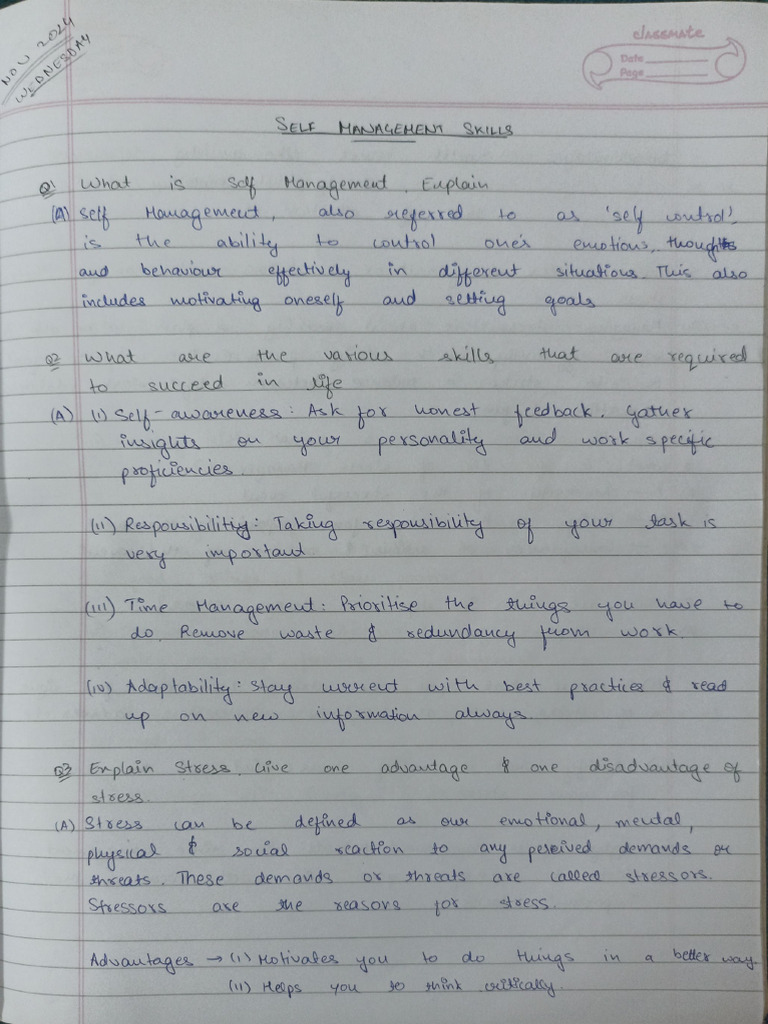 NOV 2024
WEDNESDAY
classmate
Date
Page
SELF MANAGEMENT SKILLS
Q1 What is self Management. Explain
(A) Self Management, also referred to as 'self control',
is the ability to control one's emotions, thoughts
and behaviour effectively in different situations. This also
includes motivating oneself and setting goals
Q2 What are the various skills that are required
to succeed in life
(A) (i) Self-awareness: Ask for honest feedback. Gather
insights on your personality and work specific
proficiencies.
(ii) Responsibility: Taking responsibility of your task is
very important
(iii) Time Management: Prioritise the things you have to
do. Remove waste & redundancy from work.
(iv) Adaptability: Stay current with best practices & read
up on new information always.
Q3 Explain Stress. Give one advantage & one disadvantage of
stress.
(A) Stress can be defined as our emotional, mental,
physical & social reaction to any perceived demands or
threats. These demands or threats are called stressors.
Stressors are the reasons for stress.
Advantages → (i) Motivates you to do things in a better way.
(ii) Helps you to think critically.